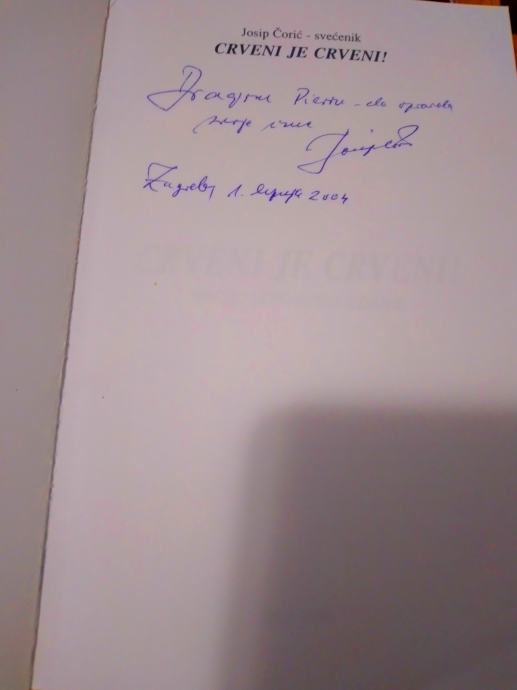 Josip Čorić - svećenik
CRVENI JE CRVENI!
Dragom Pierru - da opravda
svoje ime
Zagreb, 1. lipnja 2004
CRVENI JE CRVENI!